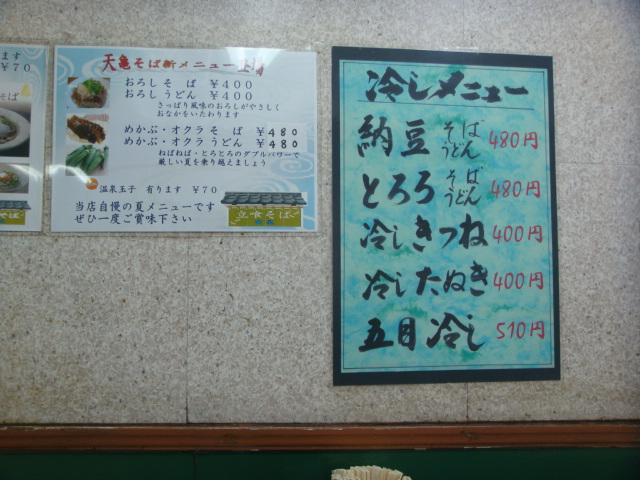 ます
¥70
そば
天亀そば新メニュー登場
おろしそば ¥400
おろしうどん ¥400
さっぱり風味のおろしがやさしく
おなかをいたわります
めかぶ・オクラそば ¥480
めかぶ・オクラうどん ¥480
ねばねば・とろとろのダブルパワーで
厳しい夏を乗り越えましょう
温泉玉子 有ります ¥70
当店自慢の夏メニューです
ぜひ一度ご賞味下さい
立喰そば
冷しメニュー
納豆 そば うどん 480円
とろろ そば うどん 480円
冷しきつね 400円
冷したぬき 400円
五目冷し 510円